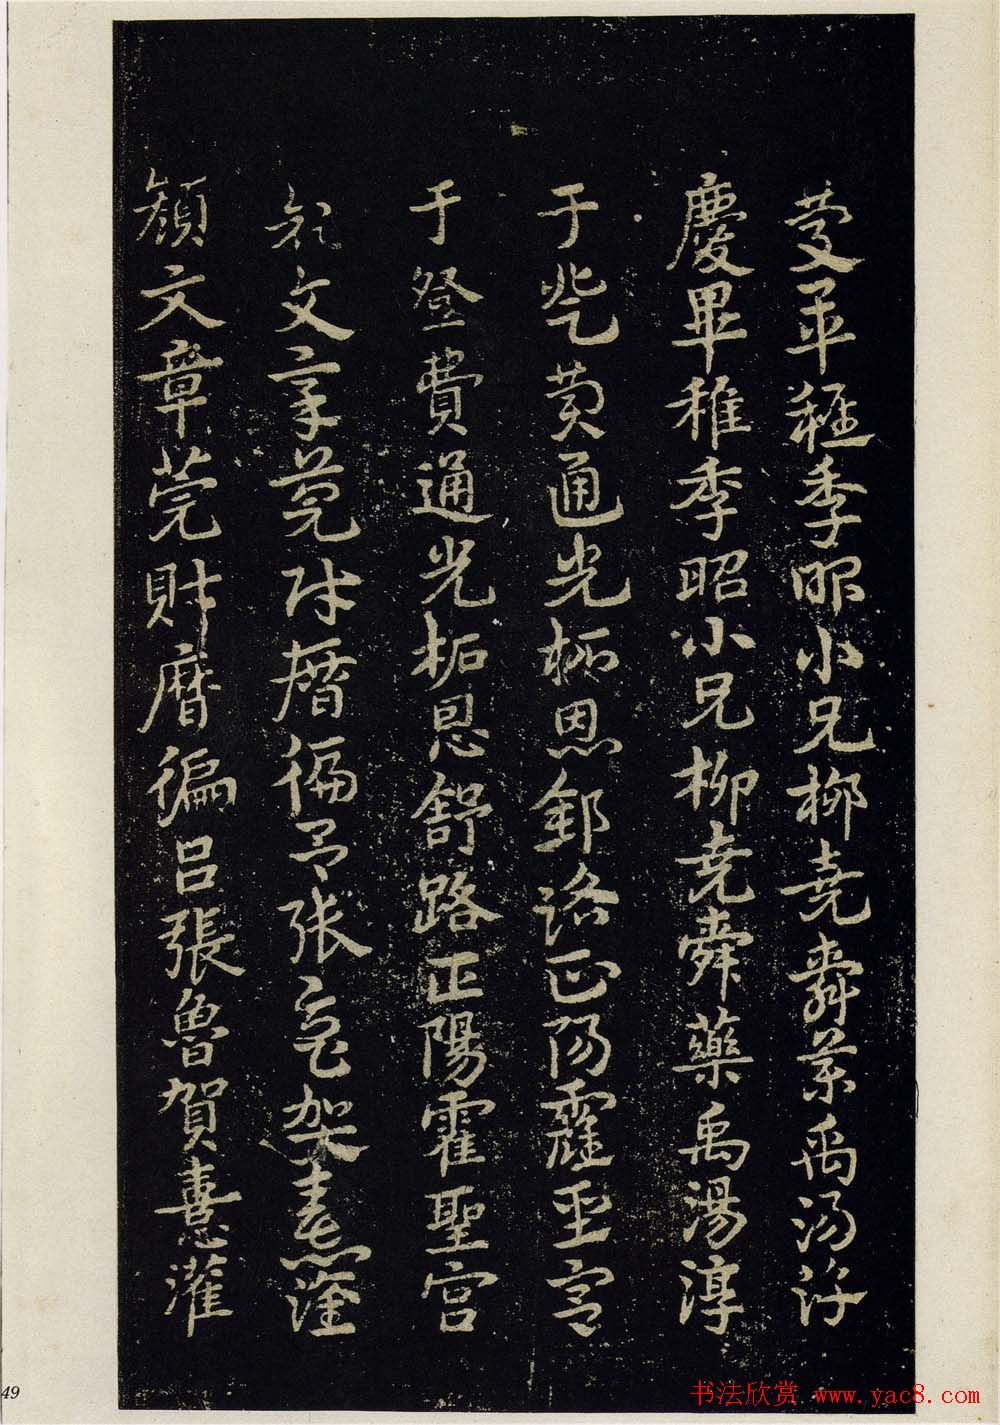 慶畢稚季昭小兄柳堯舜藥禹湯淳
慶畢稚季昭小兄柳堯舜藥禹湯淳
于登費通光柘恩舒路正陽霍聖宮
于登費通光柘恩舒路正陽霍聖宮
顏文章莞財曆偏呂張魯賀憙灌
顏文章莞財曆徧呂張魯賀憙灌
49
书法欣赏 www.yac8.com